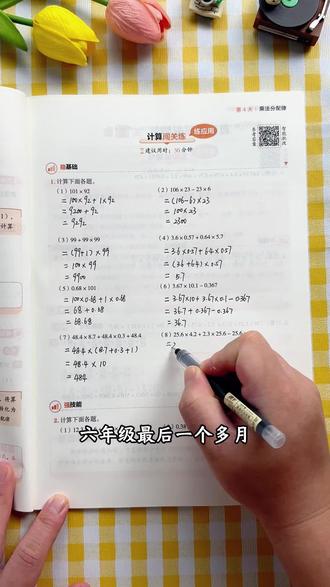 第4天 | 乘法分配律
计算闯关练 练应用
建议用时：30分钟
稳基础
1. 计算下面各题。
(1) 101×92
= 100×92+1×92
= 9200+92
= 9292
(2) 106×23−23×6
= (106-6)×23
= 100×23
= 2300
(3) 99+99×99
= (99+1)×99
= 100×99
= 9900
(4) 3.6×0.57+0.64×5.7
= 3.6×0.57+6.4×0.57
= (3.6+6.4)×0.57
= 5.7
(5) 0.68×101
= 100×0.68+1×0.68
= 68+0.68
= 68.68
(6) 3.67×10.1−0.367
= 3.67×10+3.67×0.1-0.367
= 36.7+0.367-0.367
= 36.7
(7) 48.4×8.7+48.4×0.3+48.4
= 48.4×(8.7+0.3+1)
= 48.4×10
= 484
(8) 25.6×4.2+2.3×25.6−25.6
=
强技能
2. 计算下面各题。
六年级最后一个多月